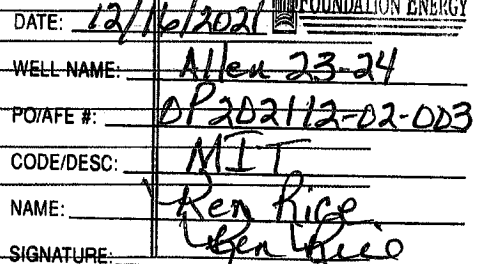 DATE: 12/16/2021 FOUNDATION ENERGY
WELL NAME: Allen 23-24
PO/AFE #: OP202112-02-003
CODE/DESC: MIT
NAME: Ken Rice
SIGNATURE: Ken Rice